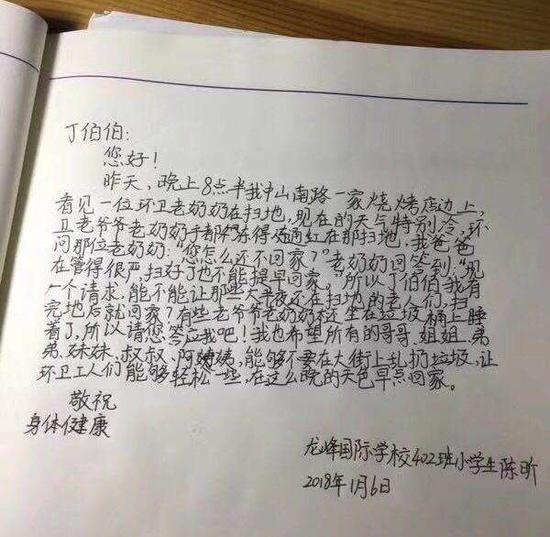 丁伯伯:
您好!
昨天,晚上8点半我中山南路一家烧烤店边上,
看见一位环卫老奶奶在扫地,现在的天气特别冷,环
卫老爷爷老奶奶手都冻得通红在那扫地,我爸爸
问那位老奶奶:“您怎么还不回家?”老奶奶回答到:“现
在管得很严,扫好了也不能提早回家。”所以丁伯伯我有
一个请求,能不能让那些大半夜还在扫地的老人们,扫
完地后就回家?有些老爷爷老奶奶都坐在垃圾桶上睡
着了,所以请您答应我吧!我也希望所有的哥哥、姐姐、弟
弟、妹妹、叔叔、阿姨,能够不要在大街上乱扔垃圾,让
环卫工人们能够轻松一些,在这么晚的天色早点回家。
敬祝
身体健康
龙峰国际学校402班小学生陈昕
2018年1月6日